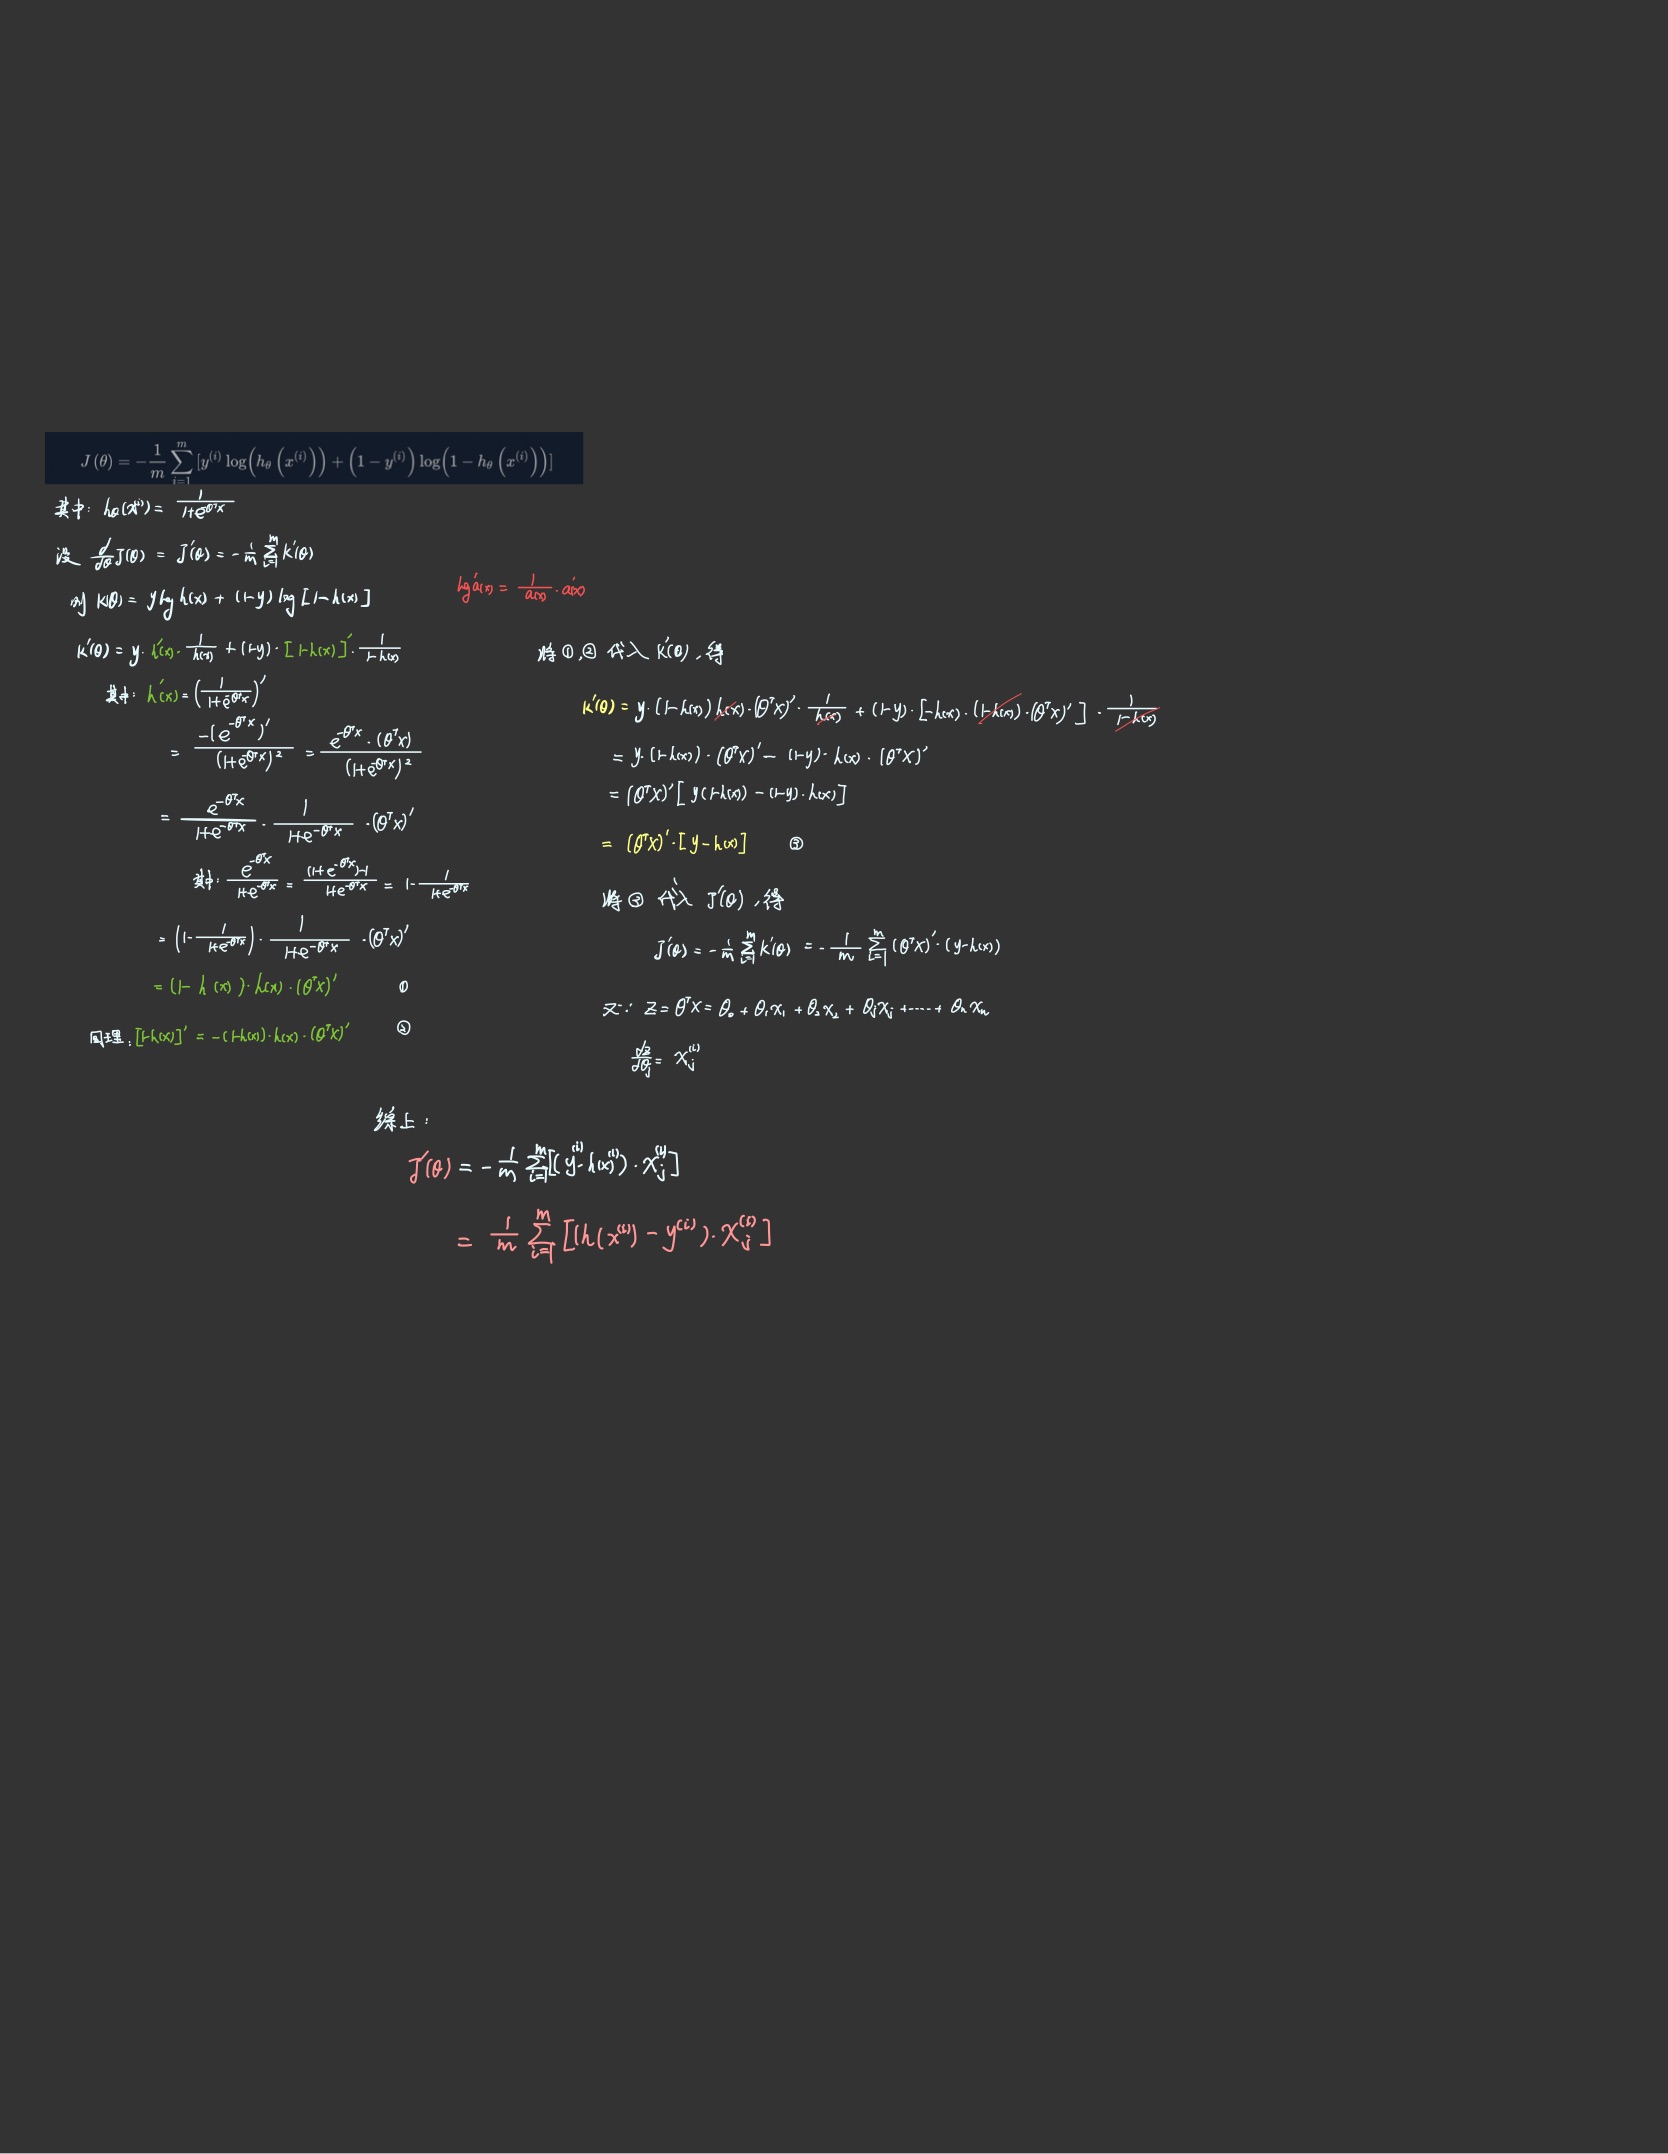 J(θ) = -\frac{1}{m} \sum_{i=1}^{m} [y^{(i)} log(h_θ(x^{(i)})) + (1 - y^{(i)}) log(1 - h_θ(x^{(i)}))]
其中: h_θ(x^{(i)}) = \frac{1}{1+e^{-θ^T x}}
设 \frac{d}{dθ} J(θ) = J'(θ) = -\frac{1}{m} \sum_{i=1}^{m} K'(θ)
则 K(θ) = y log h(x) + (1-y) log [1-h(x)]
log' a(x) = \frac{1}{a(x)} · a'(x)
K'(θ) = y · h'(x) · \frac{1}{h(x)} + (1-y) · [1-h(x)]' · \frac{1}{1-h(x)}
其中: h'(x) = (\frac{1}{1+e^{-θ^T x}})'
= \frac{-(e^{-θ^T x})'}{(1+e^{-θ^T x})^2} = \frac{e^{-θ^T x} · (θ^T x)}{(1+e^{-θ^T x})^2}
= \frac{e^{-θ^T x}}{1+e^{-θ^T x}} · \frac{1}{1+e^{-θ^T x}} · (θ^T x)'
其中: \frac{e^{-θ^T x}}{1+e^{-θ^T x}} = \frac{(1+e^{-θ^T x})-1}{1+e^{-θ^T x}} = 1 - \frac{1}{1+e^{-θ^T x}}
= (1 - \frac{1}{1+e^{-θ^T x}}) · \frac{1}{1+e^{-θ^T x}} · (θ^T x)'
= (1- h(x)) · h(x) · (θ^T x)' ①
同理: [1-h(x)]' = -(1-h(x)) · h(x) · (θ^T x)' ②
将 ①,② 代入 K'(θ), 得
K'(θ) = y · (1-h(x)) h(x) · (θ^T x)' · \frac{1}{h(x)} + (1-y) · [-h(x) · (1-h(x)) · (θ^T x)'] · \frac{1}{1-h(x)}
= y · (1-h(x)) · (θ^T x)' - (1-y) · h(x) · (θ^T x)'
= (θ^T x)' [y(1-h(x)) - (1-y) · h(x)]
= (θ^T x)' · [y-h(x)] ③
将 ③ 代入 J'(θ), 得
J'(θ) = -\frac{1}{m} \sum_{i=1}^{m} K'(θ) = -\frac{1}{m} \sum_{i=1}^{m} (θ^T x)' · (y-h(x))
又∵ z = θ^T x = θ_0 + θ_1 x_1 + θ_2 x_2 + θ_j x_j + ····· + θ_n x_n
\frac{dz}{dθ_j} = x_j^{(i)}
综上:
J'(θ) = -\frac{1}{m} \sum_{i=1}^{m} [(y^{(i)} - h(x)^{(i)}) · x_j^{(i)}]
= \frac{1}{m} \sum_{i=1}^{m} [(h(x^{(i)}) - y^{(i)}) · x_j^{(i)}]